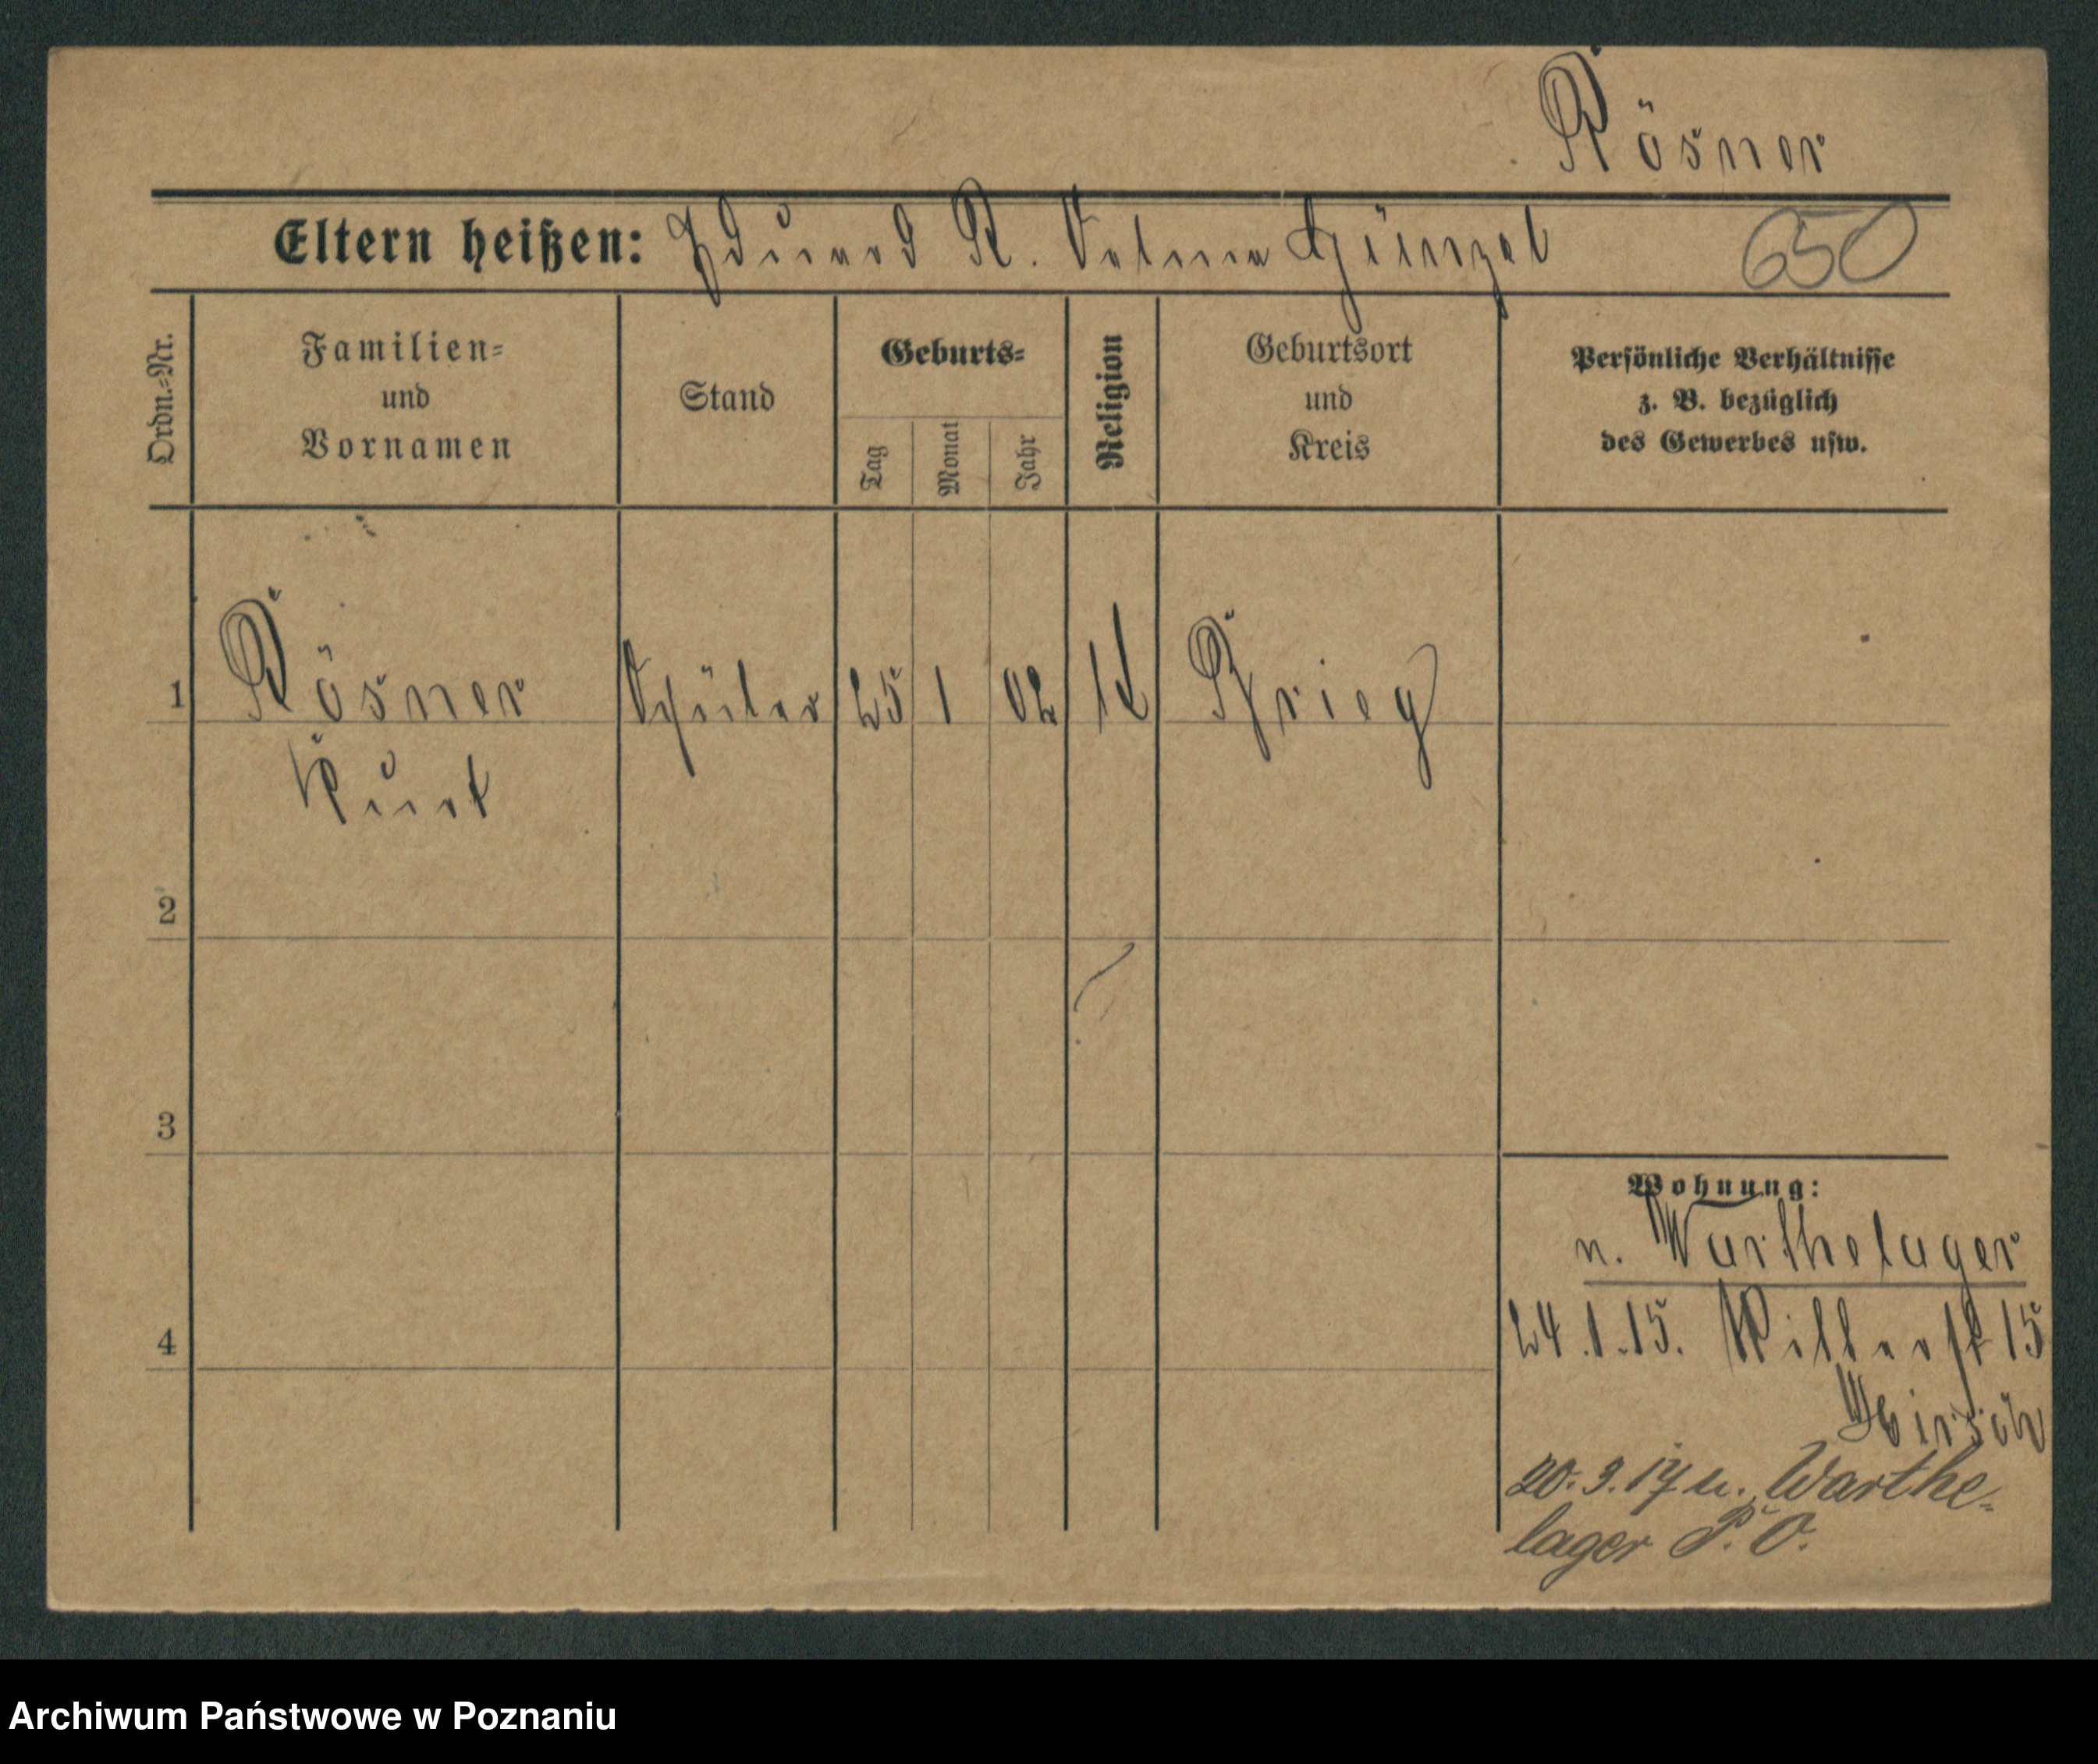 Rösner
Eltern heißen: Eduard R. Selma Günzel 650
Ordn.-Nr.
Familien-
und
Vornamen
Stand
Geburts-
Tag
Monat
Jahr
Religion
Geburtsort
und
Kreis
Persönliche Verhältnisse
z. B. bezüglich
des Gewerbes usw.
1 Rösner Schüler 25 1 02 Brieg
Kurt
2
3
4
Wohnung:
n. Warthelager
24.1.15. 15
Hirsch
20.3.17 n. Warthe-
lager P. O.
Archiwum Państwowe w Poznaniu